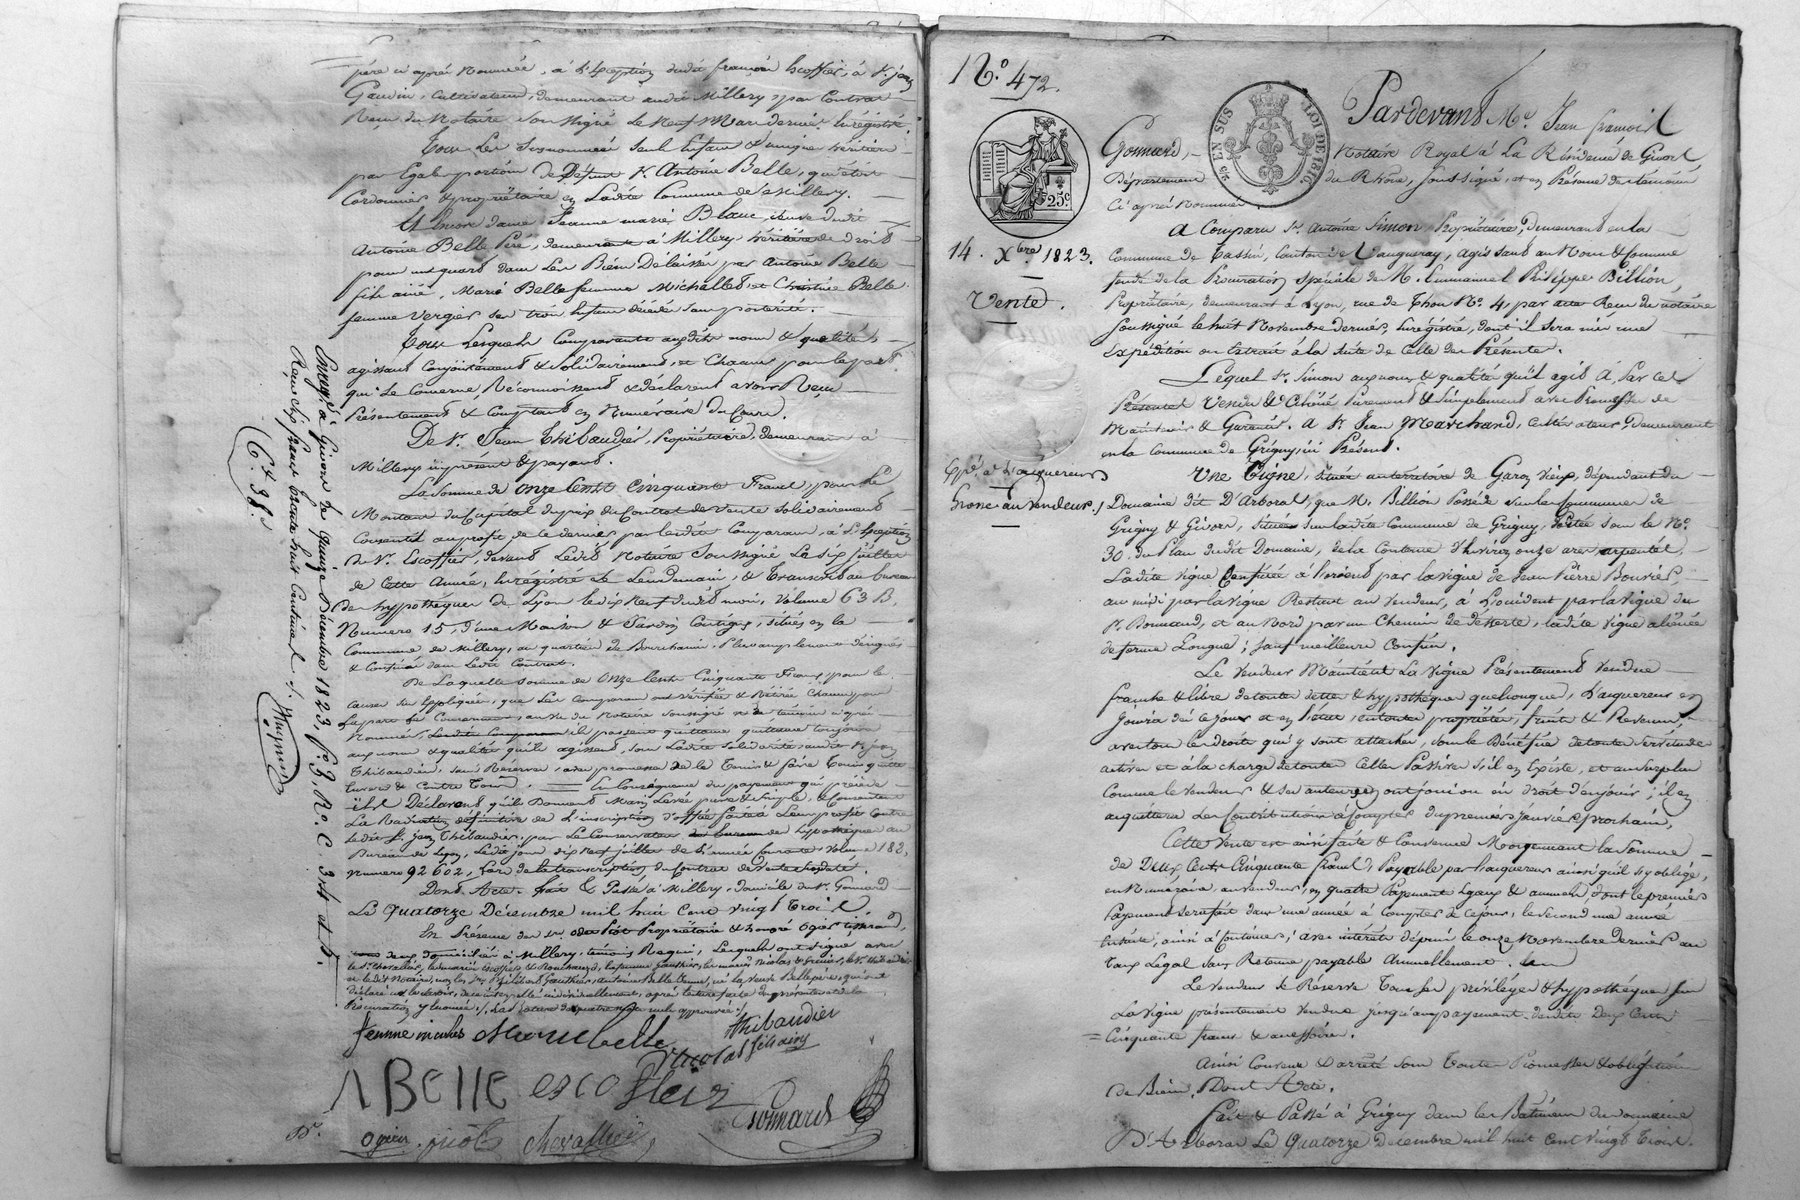 père ci après nommée, à l'Exception dudit françois Escoffier, à Sr. jean
Gaudin, Cultivateur, demeurant audit Millery, par Contrat
Reçu du Notaire Soussigné Le neuf Mars dernier. Enrégistré.
Tous Les Susnommés Seuls Enfans & uniques héritiers
par Égale portion de Défunt Sr. Antoine Belle, qui étoit
Cordonnier & propriétaire en Ladite Commune de Millery.
Et Encore dame Jeanne marie Blanc, veuve dudit
Antoine Belle Père, demeurante à Millery héritière de droit
pour un quart dans Les Biens Délaissés par Antoine Belle
fils ainé, Marie Belle femme Michallet et Christine Belle
femme Vergier ses trois Enfans décédés Sans postérité.
Tous Lesquels Comparants auxdits noms & qualités
agissant Conjointement & Solidairement, et Chacun pour le fait
qui Le Concerne Reconnoissent & déclarent avoir Reçu
Présentement & Comptant en Numéraire du Cours.
De Sr. Jean Thibaudier, Propriétaire, demeurant à
Millery ici présent & payant.
La Somme de onze Cents Cinquante Francs, pour le
Montant du Capital du prix du Contrat de Vente Solidairement
Consenti au profit de ce dernier par lesdits Comparans, à L'Exception
du Sr. Escoffier, devant Ledit Notaire Soussigné Le six juillet
de Cette Année, Enrégistré Le Lendemain, & Transcrit au bureau
des hypothèques de Lyon le dix neuf dudit mois, Volume 63 B,
Numéro 15, d'une Maison & Jardin Contigus, Situés en la
Commune de Millery, au quartier de Bourchanin. Plus amplement désignés
& Confinés dans Ledit Contrat.
De Laquelle Somme de Onze Cents Cinquante Francs, pour les
Causes Sus Expliquées, que Les Comparans ont Vérifiée & Retirée Chacun pour
La part Le Concernant, au Vu du Notaire Soussigné & des témoins ci après
Nommés, ils passent quittance
aux noms & qualités qu'ils agissent, Sous Ladite Solidarité, audit Sr. jean
Thibaudier, Sans Réserve, avec promesse de le Tenir & faire Tenir quitte
Envers & Contre Tous. En Conséquence du payement qui précède
ils Déclarent qu'ils Donnent Main Levée pure & Simple, & Consentent
La Radiation définitive de L'inscription d'office faite à Leur profit Contre
Ledit Sr. jean Thibaudier, par Le Conservateur des hypothèques au
Bureau de Lyon, Ledit jour dix neuf juillet de L'année Courante Volume 182,
Numéro 92602, Lors de la transcription du Contrat de Vente Susdaté.
Dont Acte. Fait & Passé à Millery, domicile du Sr. Gonnard
Le Quatorze Décembre mil huit Cent Vingt Trois
En Présence de Propriétaire & honoré Ogier tisserand,
tous deux domiciliés à Millery, témoins Requis, Lesquels ont Signé avec
Procuration y énoncée
Jeanne nicolas Marie belle Thibaudier
Nicolas
ABelle escoffier
Gonnard
ogier picot Chevallier
Enrég.é à Givors le quinze Décembre 1823, fo. 9, Ro. C. 3 et
Reçu Six francs trente huit Centimes
6 f. 38 c.
No. 472.
Pardevant Me. Jean françois
Gonnard, Notaire Royal à La Résidence de Givors,
Département du Rhône, Soussigné, et en Présence des témoins
Ci après nommés.
EN SUS
LOI DE 1816
25 c.
14. Xbre. 1823.
Vente.
Expé. à L'acquéreur
Grosse au Vendeur.
A Comparu Sr. Antoine Simon Propriétaire, demeurant en la
Commune de Tassin, Canton de Vaugneray, agissant au Nom & Comme
fondé de la Procuration Spéciale de M. Emmanuel Philippe Billion,
Propriétaire, demeurant à Lyon, rue de Thou No. 4, par acte Reçu du notaire
Soussigné le huit Novembre dernier, Enrégistré, dont il Sera mis une
Expédition ou Extrait à la Suite de Celle des Présentes.
Lequel Sr. Simon aux nom & qualité qu'il agit A Par Ces
Présentes Vendu & Cédé Purement & Simplement avec Promesse de
Maintenir & Garantir. A Sr. Jean Marchand, Cultivateur, demeurant
en la Commune de Grigny, ici Présent.
Une Vigne, Située au territoire de Garon Vieux, dépendant du
Domaine dit D'Arboras, que M. Billion Possède sur les Communes de
Grigny & Givors, Située Sur ladite Commune de Grigny, portée Sous le No.
30 du Plan dudit Domaine, de la Contenue d'Environ onze ares arpentés,
Ladite Vigne Confinée à l'orient par la Vigne de Jean Pierre Bouvier,
au midi par la Vigne Restant au Vendeur, à L'occident par la Vigne du
Sr. Bonnand, et au Nord par un Chemin de déserte, ladite Vigne aliénée
de forme Longue; Sauf meilleurs Confins.
Le Vendeur Maintient La Vigne Présentement Vendue
franche & libre de toutes dettes & hypothèques quelconques, L'acquéreur en
Jouira dès ce jour et en Sera en toute propriété, fruits & Revenus,
avec tous les droits qui y Sont attachés, Sous le Bénéfice de toutes Servitudes
actives et à la charge de toutes Celles Passives s'il en Existe, et au Surplus
Comme le Vendeur & Ses auteurs en ont joui ou eu droit d'en jouir; il en
acquittera les Contributions à Compter du premier Janvier prochain.
Cette Vente est ainsi faite & Convenue Moyennant la Somme
de Deux Cents Cinquante francs, Payable par l'acquéreur ainsi qu'il s'y oblige,
en Numéraire au Vendeur, en quatre Payements Egaux & annuels, dont le premier
Payement Sera fait dans une année à Compter de Ce jour, le Second une année
Ensuite, ainsi à Continuer; avec intérêts depuis le onze Novembre Dernier au
Taux Légal Sans Retenue payable Annuellement.
Le Vendeur Se Réserve Tous Ses privilèges & hypothèques Sur
La Vigne présentement Vendue jusqu'au payement desdits deux Cents
Cinquante francs & accessoires.
Ainsi Convenu & arrêté Sous Toutes Promesses & obligations
de Biens. Dont Acte.
Fait & Passé à Grigny dans les Bâtimens du domaine
D'Arboras Le Quatorze Décembre mil huit Cent Vingt Trois.